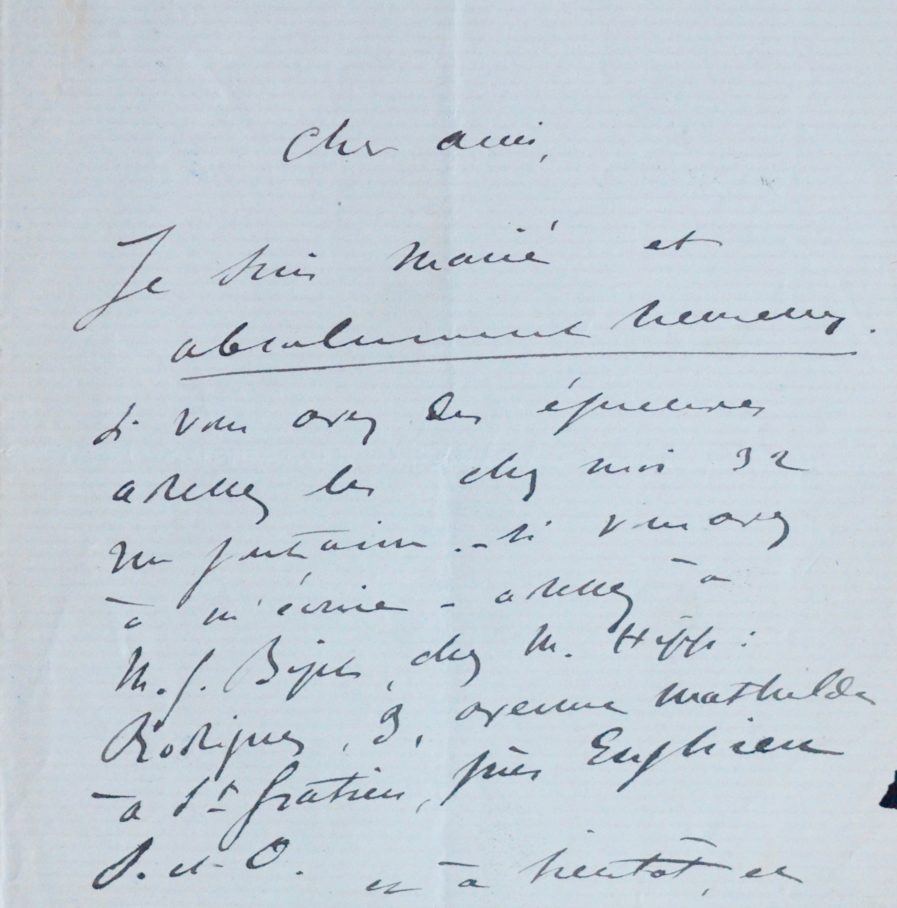 Cher ami,
Je suis marié et
absolument heureux.
Si vous avez des épreuves
adressez les chez moi 32
rue fontaine. - si vous avez
à m'écrire - adressez à
M. G. Bizet, chez M. Hipp:
Rodrigues, 3, avenue Mathilde
à St Gratien, près Enghien
S. et O. et à bientôt, et